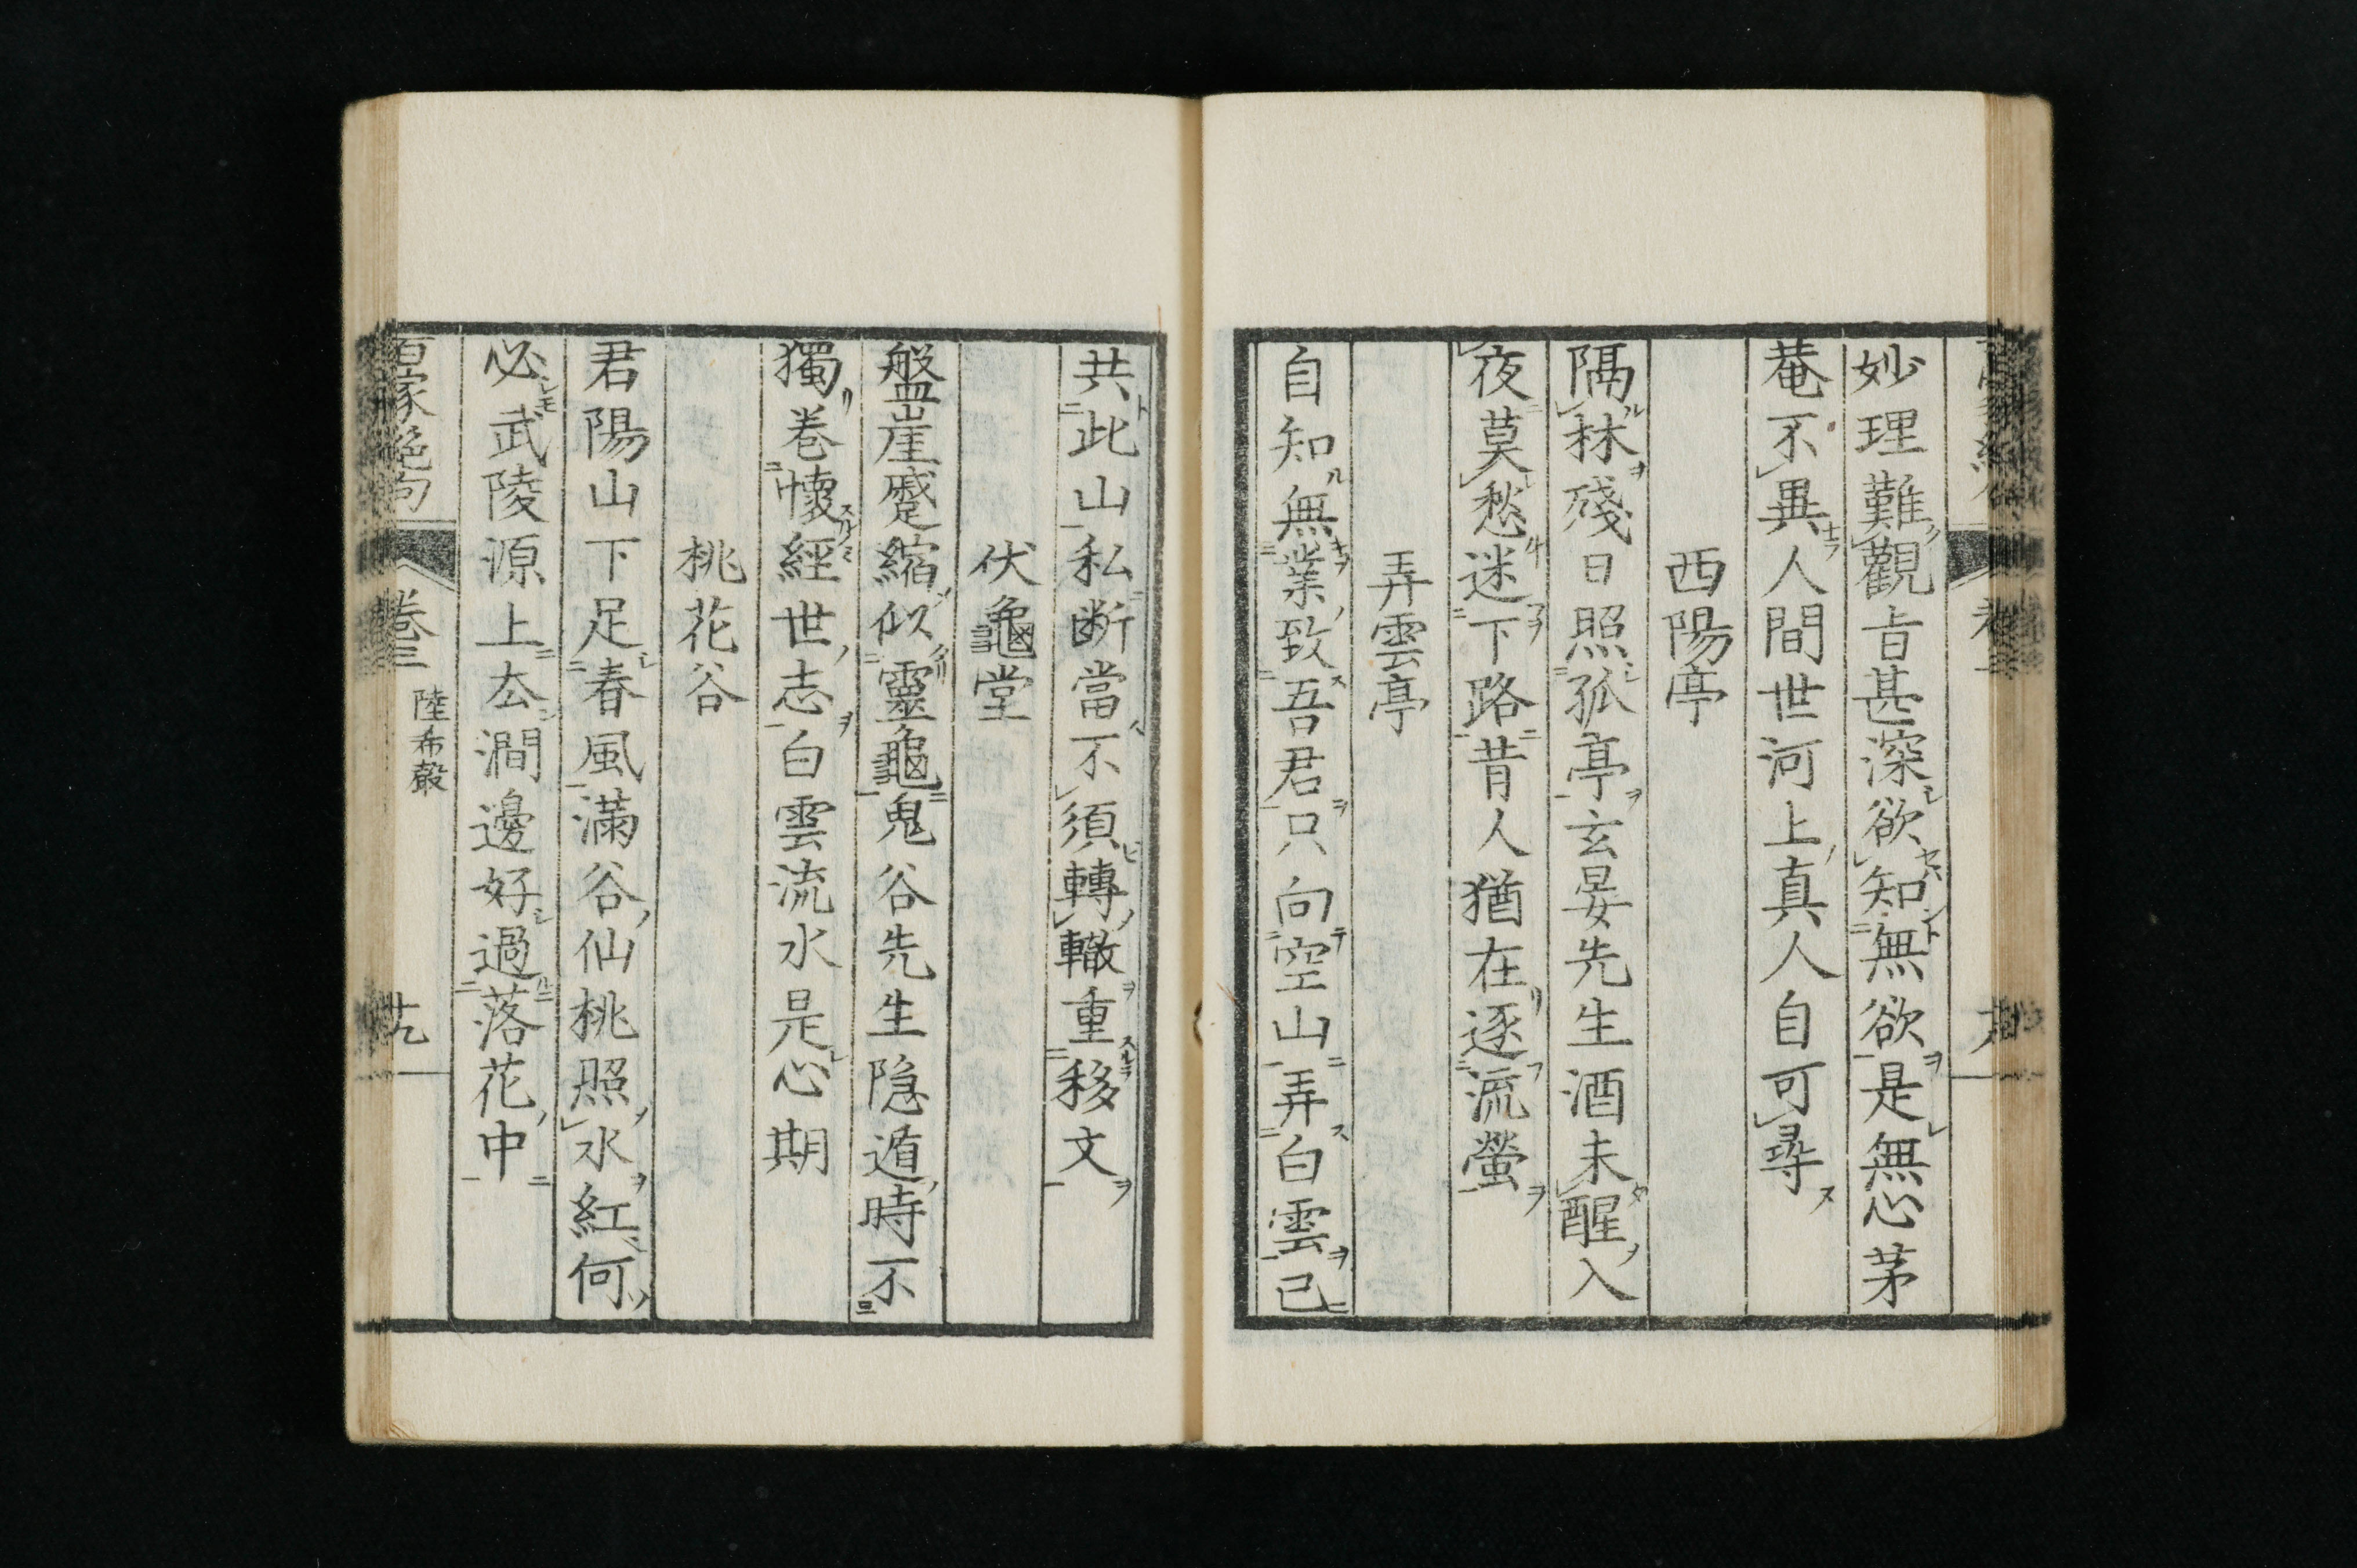 妙理難觀旨甚深欲知無欲是無心茅
菴不異人間世河上真人自可尋
西陽亭
隔林殘日照孤亭玄晏先生酒未醒入
夜莫愁迷下路昔人猶在逐流螢
弄雲亭
自知無業致吾君只向空山弄白雲已
共此山私断當不須轉轍重移文
伏龜堂
盤崖蹙縮似靈龜鬼谷先生隐遁時不
獨卷懐經世志白雲流水是心期
桃花谷
君陽山下足春風滿谷仙桃照水紅何
必武陵源上去澗邊好過落花中
百家絶句
卷三
陸希聲
廿九